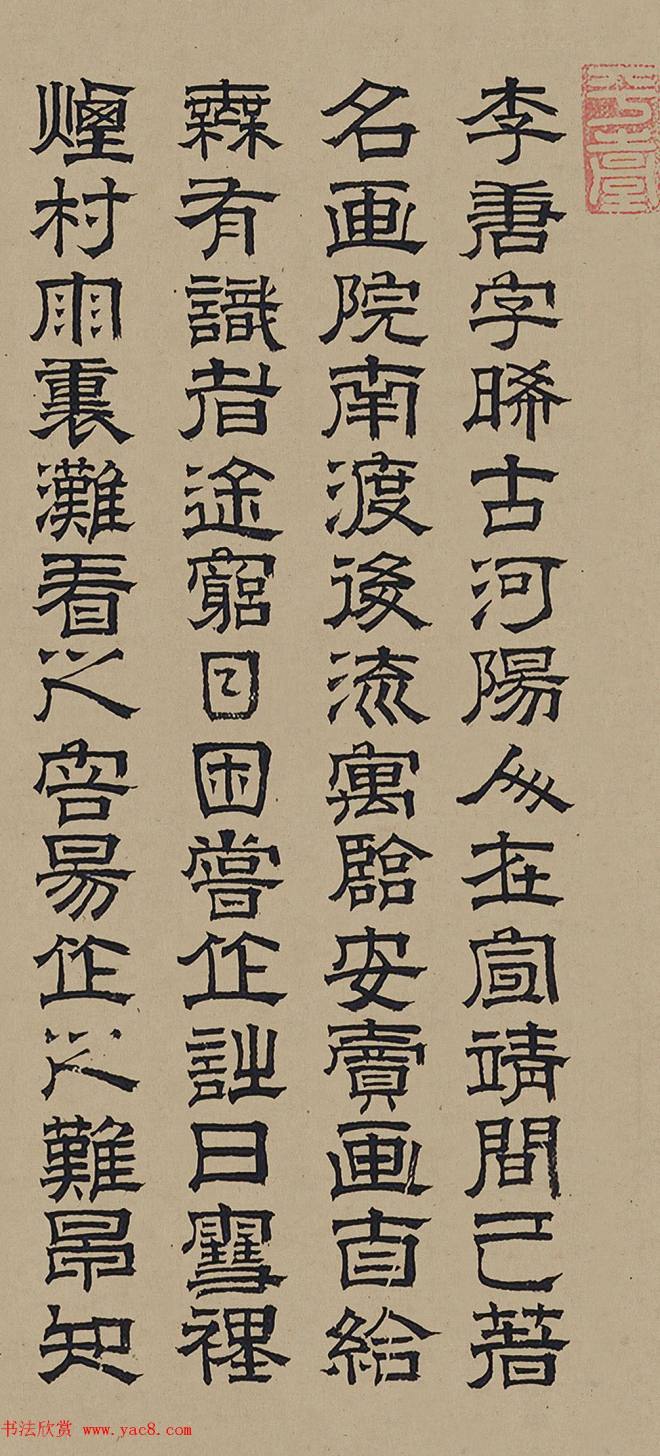 李唐字晞古河陽人在宣靖間已著
名画院南渡後流寓臨安賣画自給
無有識者途窮日困嘗作詩曰雪裡
煙村雨裏灘看之容易作之難早知
书法欣赏 www.yac8.com